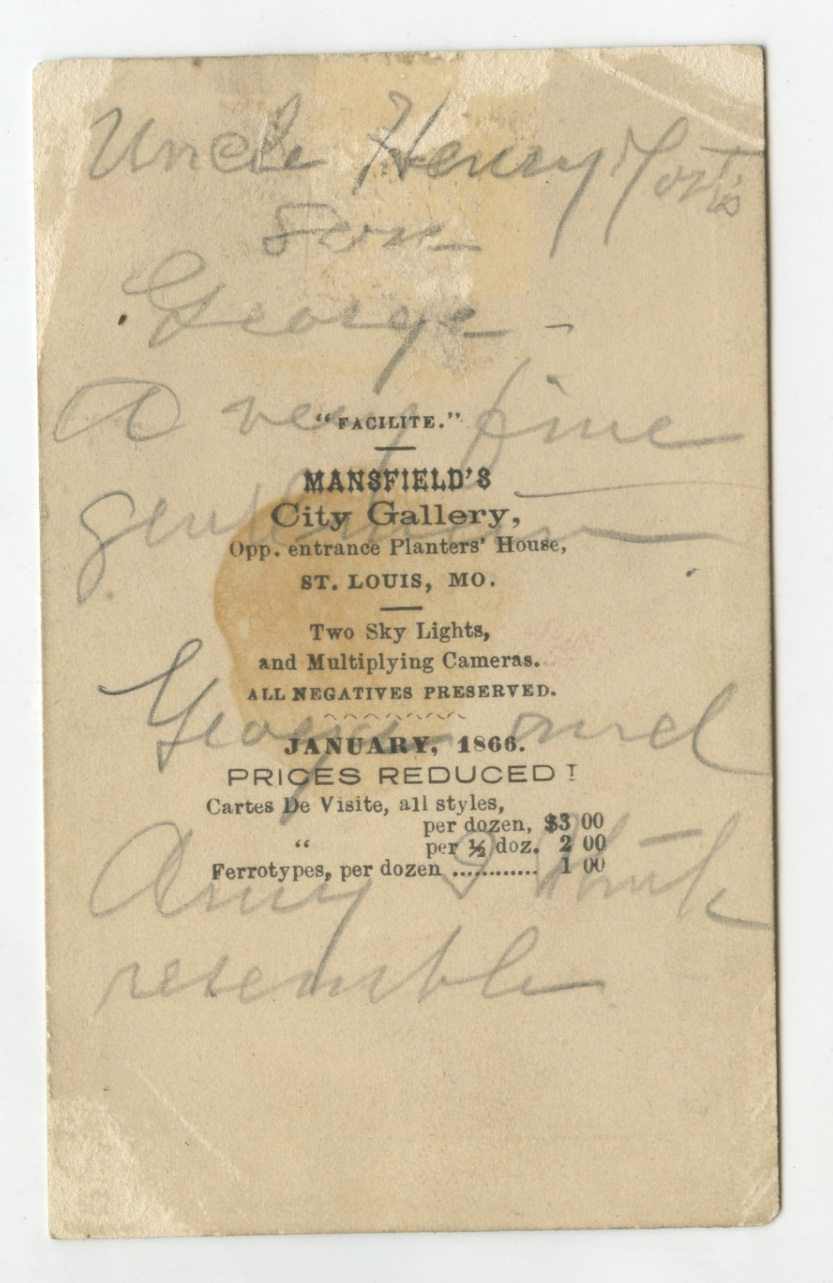 Uncle Henry
son
George -
A very fine
gentleman
"FACILITE."
MANSFIELD'S
City Gallery,
Opp. entrance Planters' House,
ST. LOUIS, MO.
Two Sky Lights,
and Multiplying Cameras.
ALL NEGATIVES PRESERVED.
George and
JANUARY, 1866.
PRICES REDUCED!
Cartes De Visite, all styles,
per dozen, $3 00
" per ½ doz. 2 00
Ferrotypes, per dozen ............ 1 00
I think
resemble